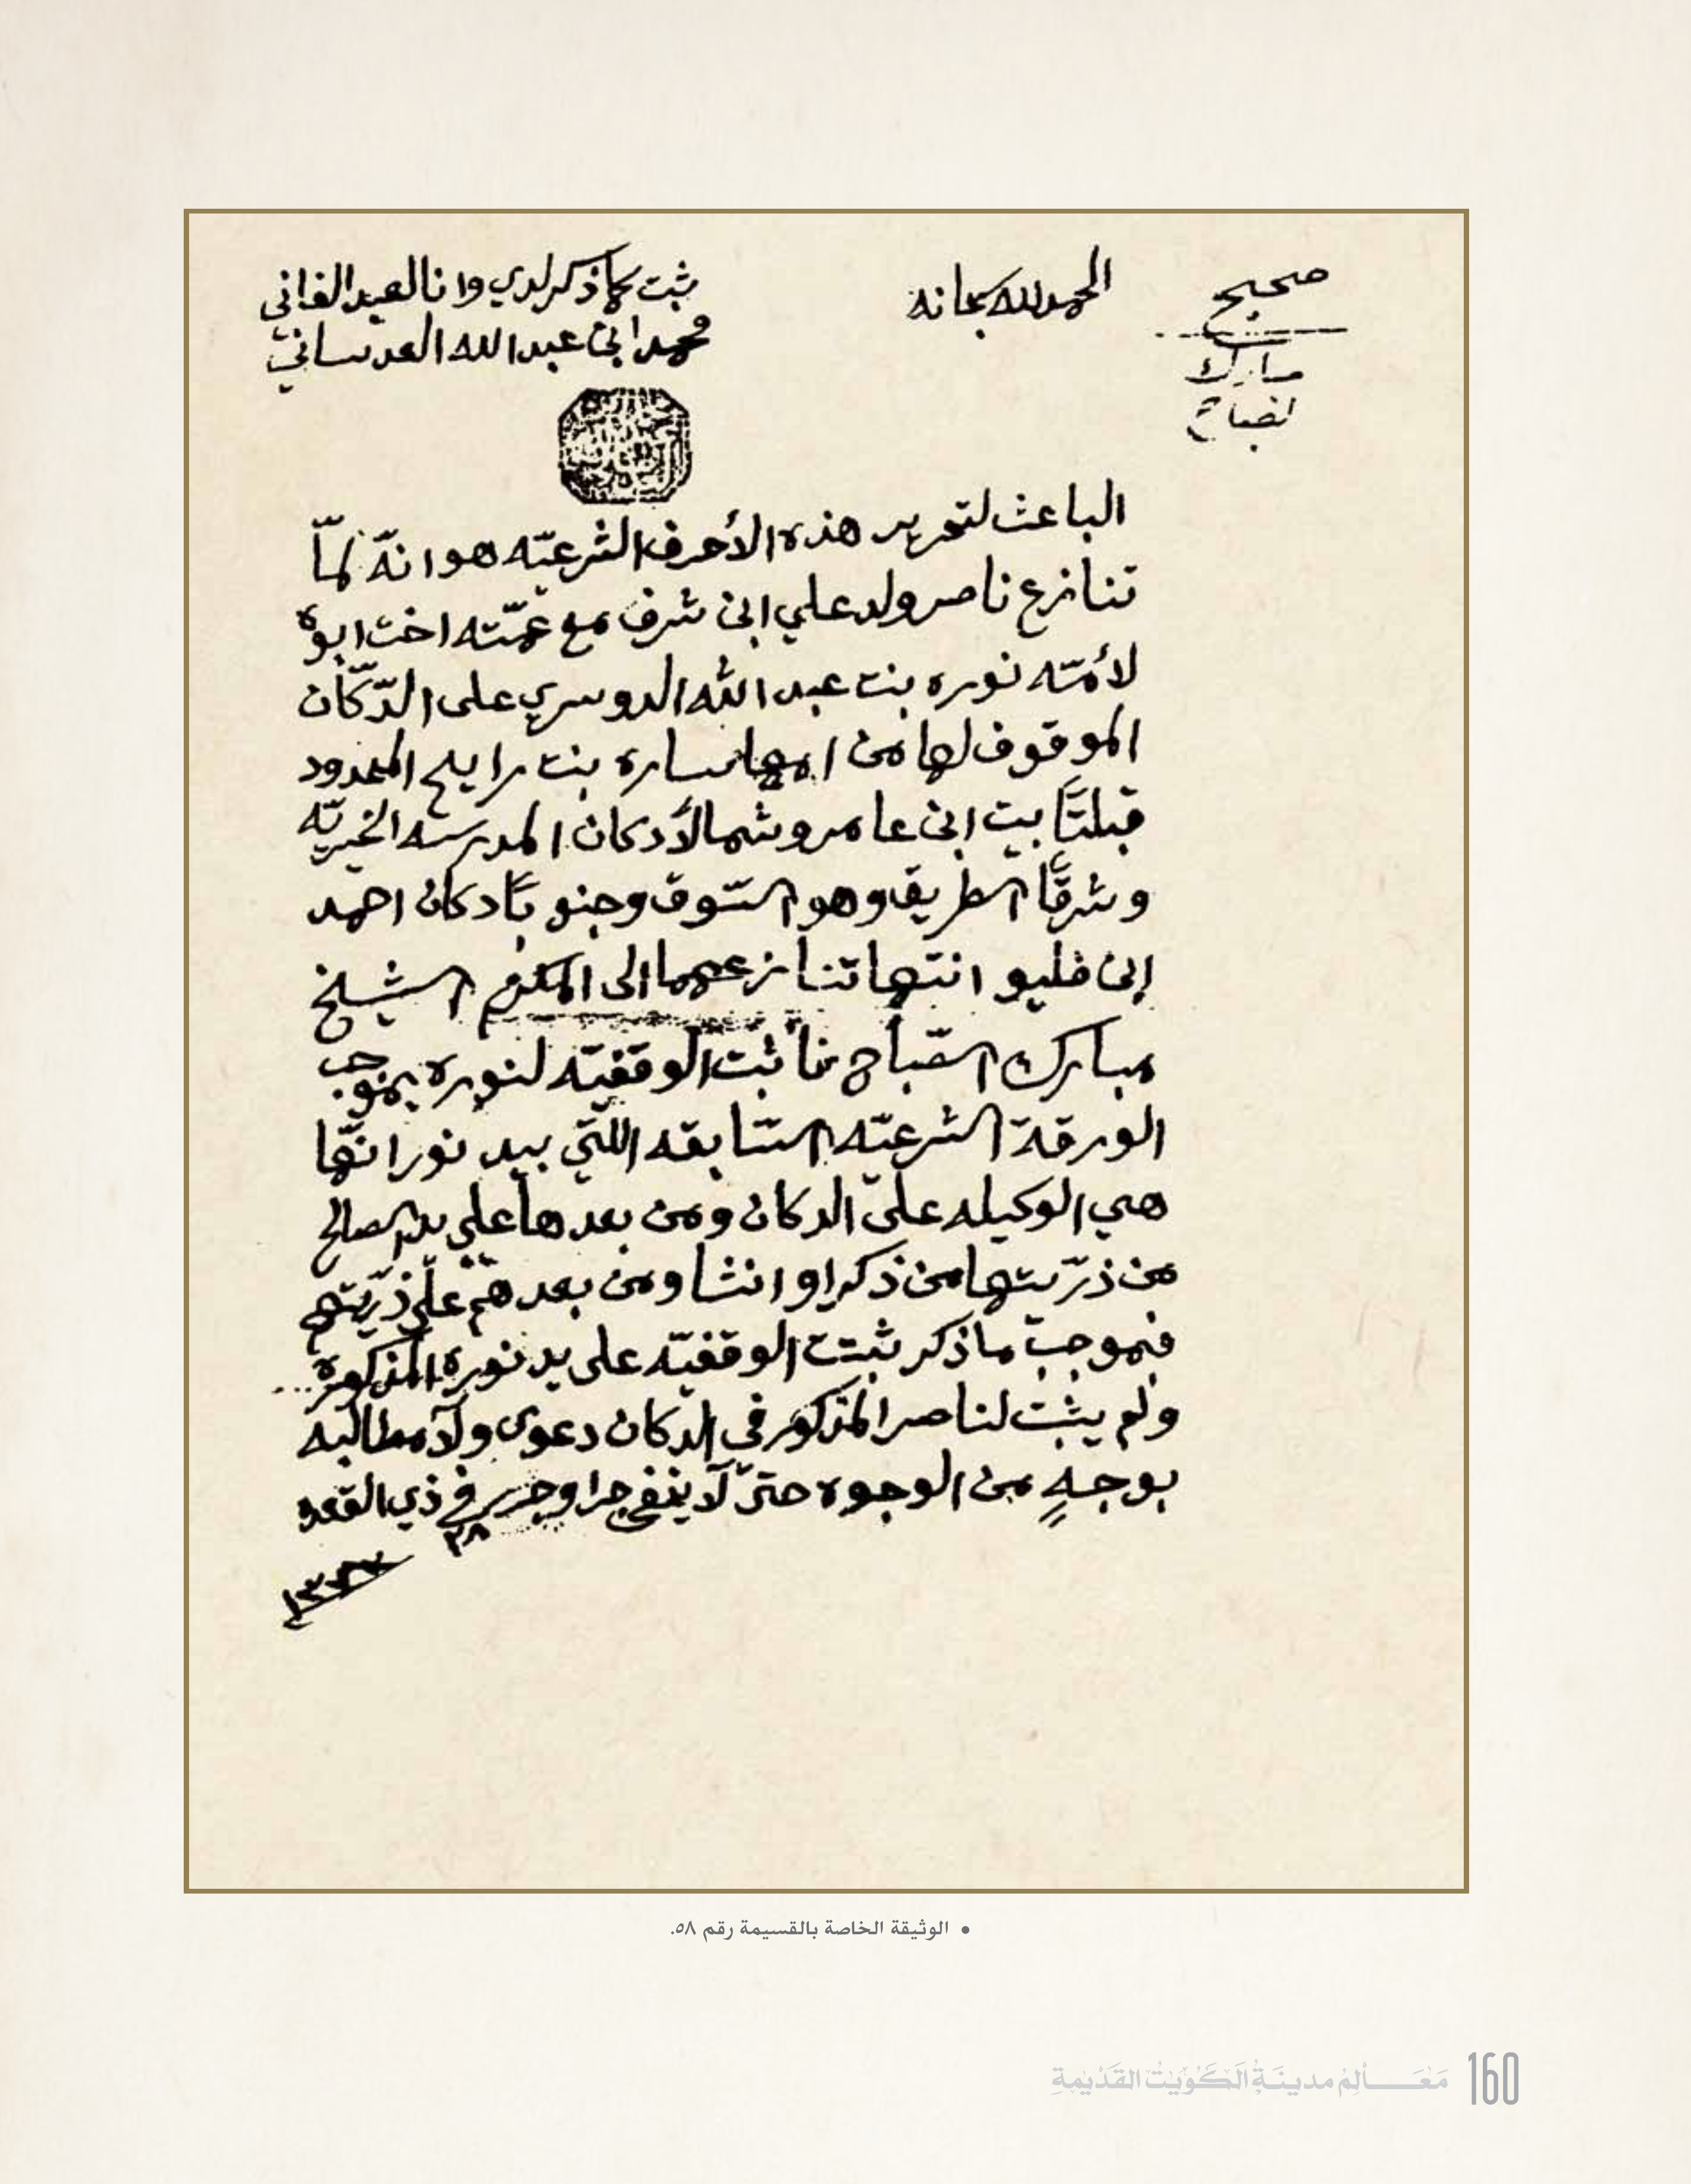 صحيح
مبارك
الصباح
الحمد لله سبحانه
ثبت بما ذكر لدي وانا العبد الفاني
محمد ابن عبدالله العدساني
الباعث لتحرير هذه الأحرف الشرعيّه هو انّه لمّا
تنازع ناصر ولد علي ابن شرف مع عمّته اخت ابوه
لأمّه نوره بنت عبدالله الدوسري على الدّكّان
الموقوف لها من امها ساره بنت رايلح المحدود
قبلتاً بيت ابن عامر وشمالاً دكان المدرسه الخيريّه
وشرقاً الطريق وهو السّوق وجنوباً دكان احمد
ابن فليو انتها تنازعهما الى المكرم الشيخ
مبارك الصّباح فأثبت الوقفيّه لنوره بموجب
الورقة الشرعيّه السّابقه اللتي بيد نورا انّها
هي الوكيله على الدكان ومن بعدها على يد الصالح
من ذرّيتها من ذكرا و انثا ومن بعدهم على ذرّيتهم
فبموجب ما ذكر ثبتت الوقفيّه على يد نوره المذكورة
ولم يثبت لناصر المذكور في الدكان دعوى ولا مطالبه
بوجهٍ من الوجوه حتىّ لا يخفى جرا وحرر في ذي القعده
٢٨
• الوثيقة الخاصة بالقسيمة رقم ٥٨.
مَعَالِم مدينَة الكُوَيْت القَدْيمة 160